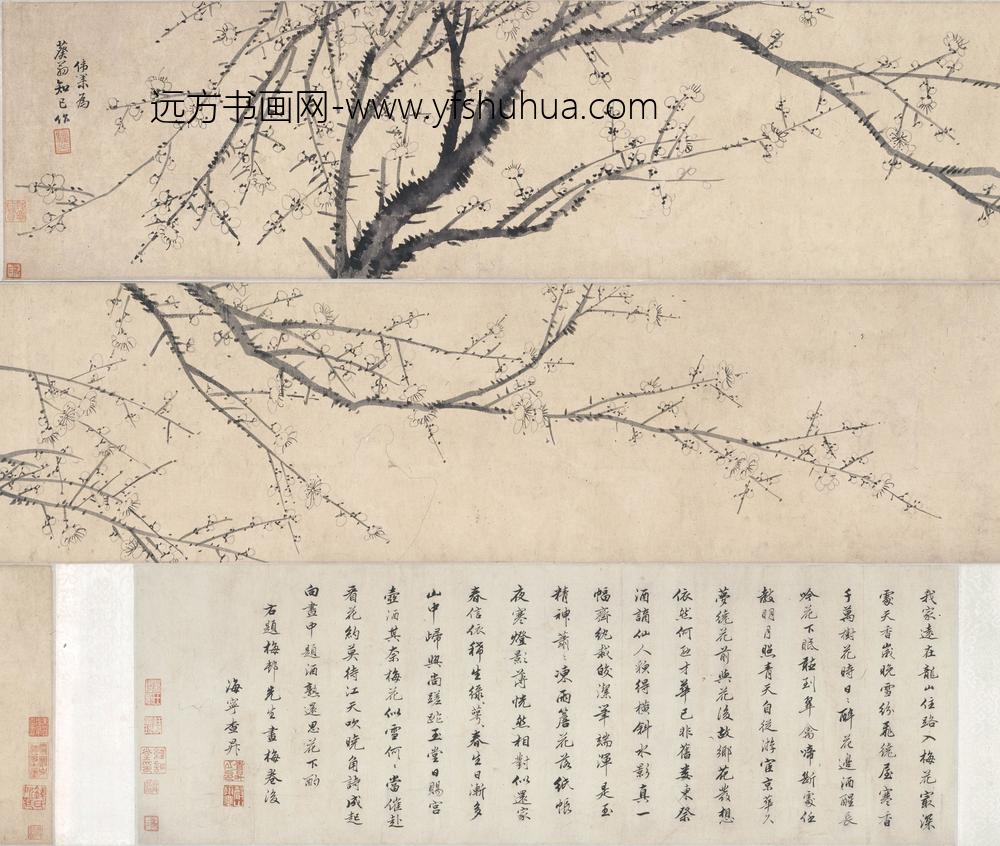 偉業為
葵翁知己作
远方书画网-www.yfshuhua.com
我家遠在龍山住路入梅花最深
處天香嵗晚雪紛飛繞屋寒香
千萬樹花時日〻醉花邊酒醒長
吟花下眠 到翠禽啼斷處任
教明月照青天自從游宦京華久
夢繞花前與花後故鄉花發想
依然何 才華已非舊婁東祭
酒謫仙人種得橫斜水影真一
幅齊紈裁皎潔筆端渾是玉
精神蕭〻凍雨簷花落紙帳
夜寒燈影薄恍然相對似還家
春信依稀生綠萼春生日漸多
山中歸興尚蹉跎玉堂日賜宮
壺酒其奈梅花似雪何〻當催赴
看花約莫待江天吹曉角詩成起
向畫中題酒熟還思花下酌
右題梅邨先生畫梅卷後
海寧查昇